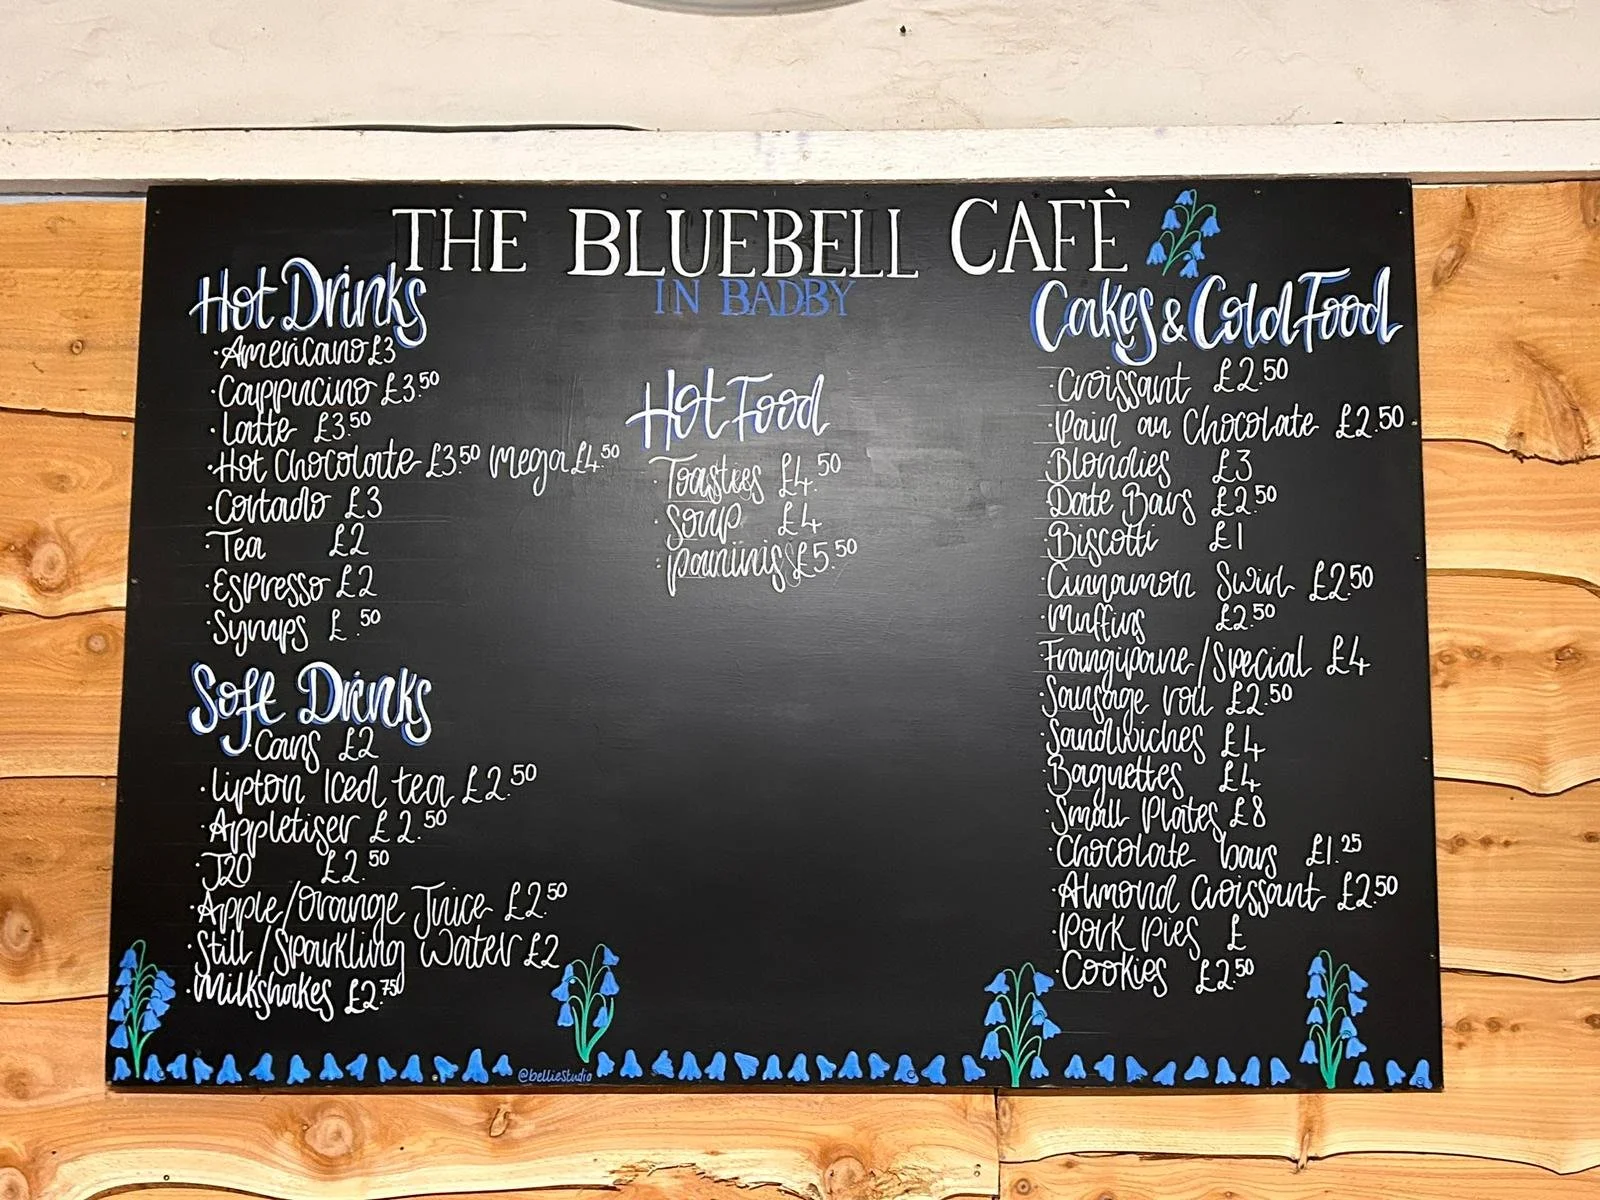 THE BLUEBELL CAFÈ
IN BADBY
Hot Drinks
·Americano £3
·Cappucino £3.50
·Latte £3.50
·Hot Chocolate £3.50 mega £4.50
·Cortado £3
·Tea £2
·Espresso £2
·Syrups £.50
Soft Drinks
·Cans £2
·Lipton Iced tea £2.50
·Appletiser £2.50
·J20 £2.50
·Apple/Orange Juice £2.50
·Still/Sparkling Water £2
·Milkshakes £2.75
Hot Food
·Toasties £4.50
·Soup £4
·paninis £5.50
Cakes & Cold Food
·Croissant £2.50
·Pain au Chocolate £2.50
·Blondies £3
·Date Bars £2.50
·Biscotti £1
·Cinnamon Swirl £2.50
·Muffins £2.50
·Frangipane/Special £4
·Sausage roll £2.50
·Sandwiches £4
·Baguettes £4
·Small Plates £8
·Chocolate bars £1.25
·Almond Croissant £2.50
·Pork Pies £
·Cookies £2.50
@belliestudio